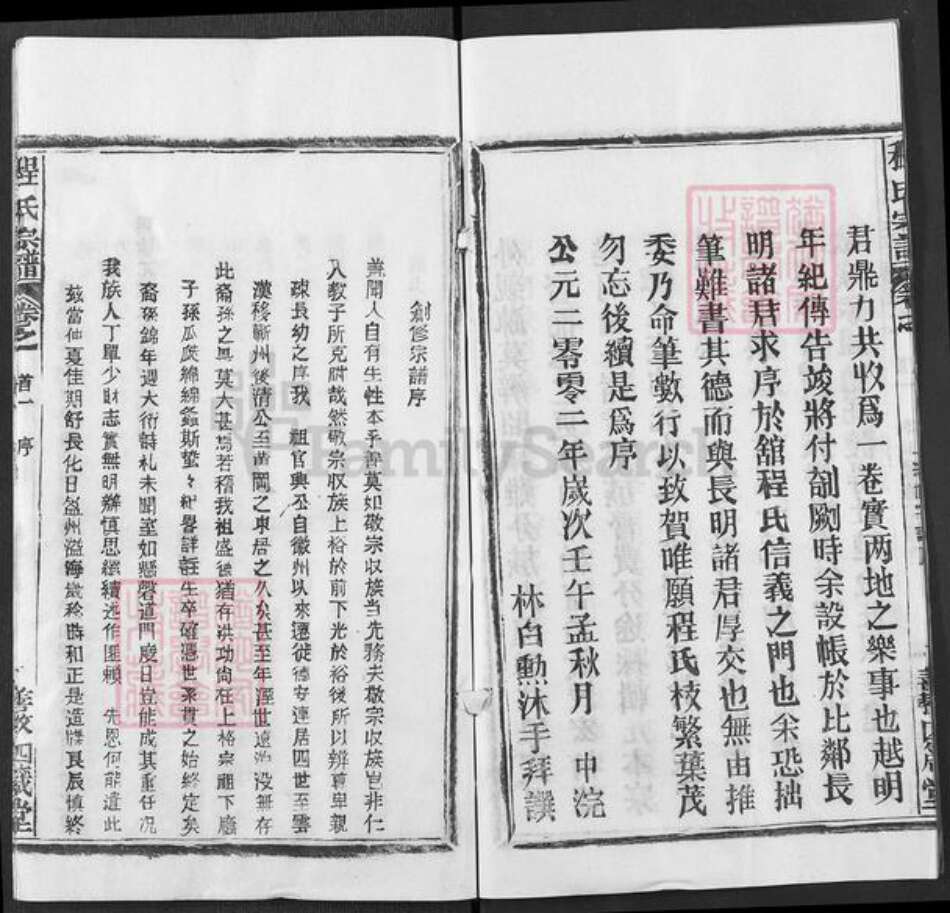 君鼎力共收爲一卷實两地之樂事也越明
年紀傳告竣將付剞劂時余設帳於比鄰長
明諸君求序於舘程氏信義之門也余恐拙
筆難書其德而與長明諸君厚交也無由推
委乃命筆數行以致賀唯願程氏枝繁葉茂
勿忘後續是爲序
公元二零零二年歲次壬午孟秋月中浣
林白勲沐手拜譔
創修宗譜序
善聞人自有生性本乎善莫如敬宗収族当先務夫敬宗収族豈非仁
人教子所克臍哉然敬宗収族上裕於前下光於裕後所以辨尊卑親
疎長幼之序我 祖官興公自徽州以來遷徙德安連居四世至雲
漢移蘄州後清公至黄岡之東居之久矣甚至年湮世遠治没無存
此裔孫之辱莫大甚焉若稽我祖盛德猶有洪功尚在上格宗祖下廕
子孫瓜瓞綿綿螽斯蟄々紀畧詳註生卒確憑世系貫之始終定矣
裔孫錦年週大衍詩札未聞室如懸磬道門慶日豈能成其重任况
我族人丁單少財志實無明辨慎思繼續述作匪賴 先恩何能遺此
兹當仲夏佳期舒長化日盈州溢海歲稔時和正是造牒良辰慎終
程氏宗譜 卷之一 首一 序 善教 四箴堂
FamilySearch